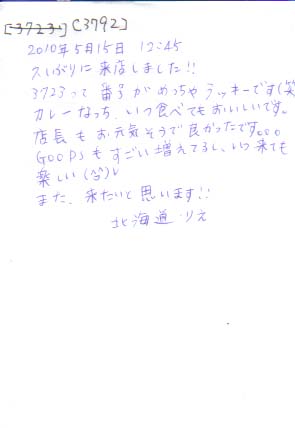 [3723] [3792]
2010年5月15日 12:45
久しぶりに来店しました!!
3723って番号がめっちゃラッキーです(笑
カレーなっち、いつ食べてもおいしいです。
店長もお元気そうで良かったです。。。
GOODSもすごい増えてるし、いつ来ても
楽しい(^^)v
また、来たいと思います!!
北海道 りえ